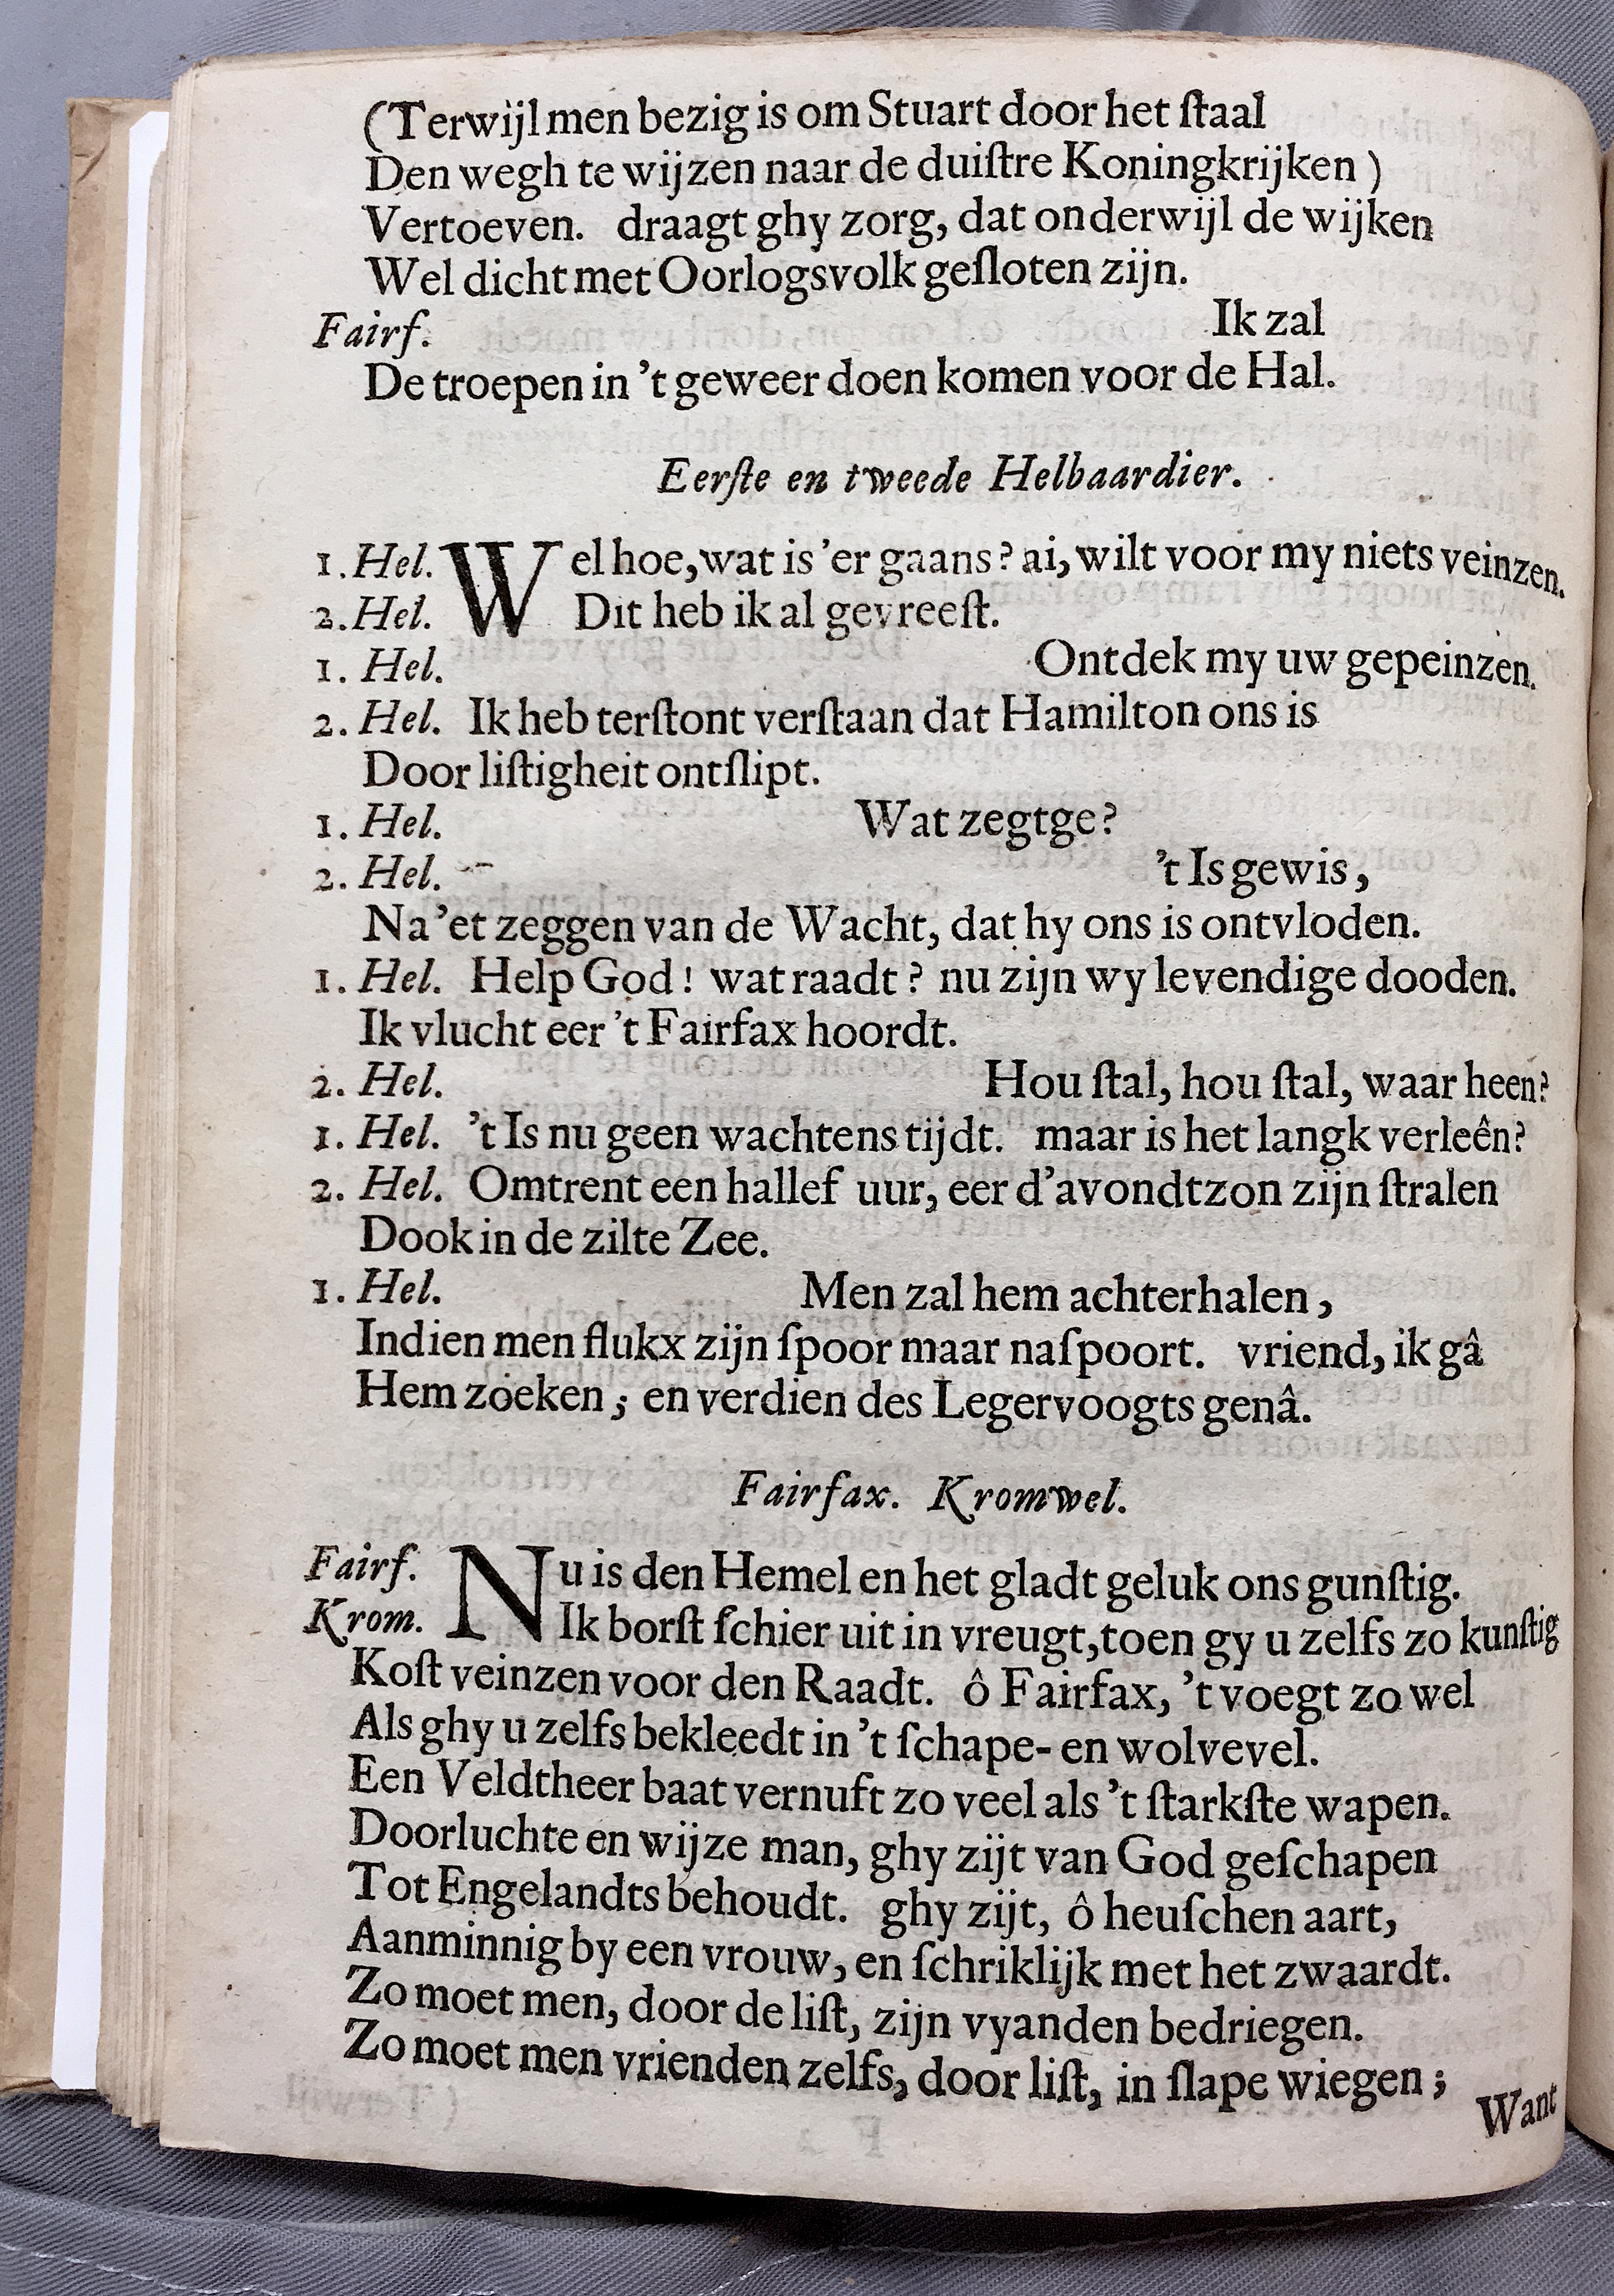 (Terwijl men bezig is om Stuart door het ſtaal
Den wegh te wijzen naar de duiſtre Koningkrijken)
Vertoeven. draagt ghy zorg, dat onderwijl de wijken
Wel dicht met Oorlogsvolk geſloten zijn.
Fairf. Ik zal
De troepen in 't geweer doen komen voor de Hal.
Eerſte en tweede Helbaardier.
1. Hel. Wel hoe, wat is 'er gaans? ai, wilt voor my niets veinzen.
2. Hel. Dit heb ik al gevreeſt.
1. Hel. Ontdek my uw gepeinzen.
2. Hel. Ik heb terſtont verſtaan dat Hamilton ons is
Door liſtigheit ontſlipt.
1. Hel. Wat zegtge?
2. Hel. 't Is gewis,
Na 'et zeggen van de Wacht, dat hy ons is ontvloden.
1. Hel. Help God! wat raadt? nu zijn wy levendige dooden.
Ik vlucht eer 't Fairfax hoordt.
2. Hel. Hou ſtal, hou ſtal, waar heen?
1. Hel. 't Is nu geen wachtens tijdt. maar is het langk verleên?
2. Hel. Omtrent een hallef uur, eer d'avondtzon zijn ſtralen
Dook in de zilte Zee.
1. Hel. Men zal hem achterhalen,
Indien men flukx zijn ſpoor maar naſpoort. vriend, ik gâ
Hem zoeken; en verdien des Legervoogts genâ.
Fairfax. Kromwel.
Fairf. Nu is den Hemel en het gladt geluk ons gunſtig.
Krom. Ik borſt ſchier uit in vreugt, toen gy u zelfs zo kunſtig
Koſt veinzen voor den Raadt. ô Fairfax, 't voegt zo wel
Als ghy u zelfs bekleedt in 't ſchape- en wolvevel.
Een Veldtheer baat vernuft zo veel als 't ſtarkſte wapen.
Doorluchte en wijze man, ghy zijt van God geſchapen
Tot Engelandts behoudt. ghy zijt, ô heuſchen aart,
Aanminnig by een vrouw, en ſchriklijk met het zwaardt.
Zo moet men, door de liſt, zijn vyanden bedriegen.
Zo moet men vrienden zelfs, door liſt, in ſlape wiegen;
Want